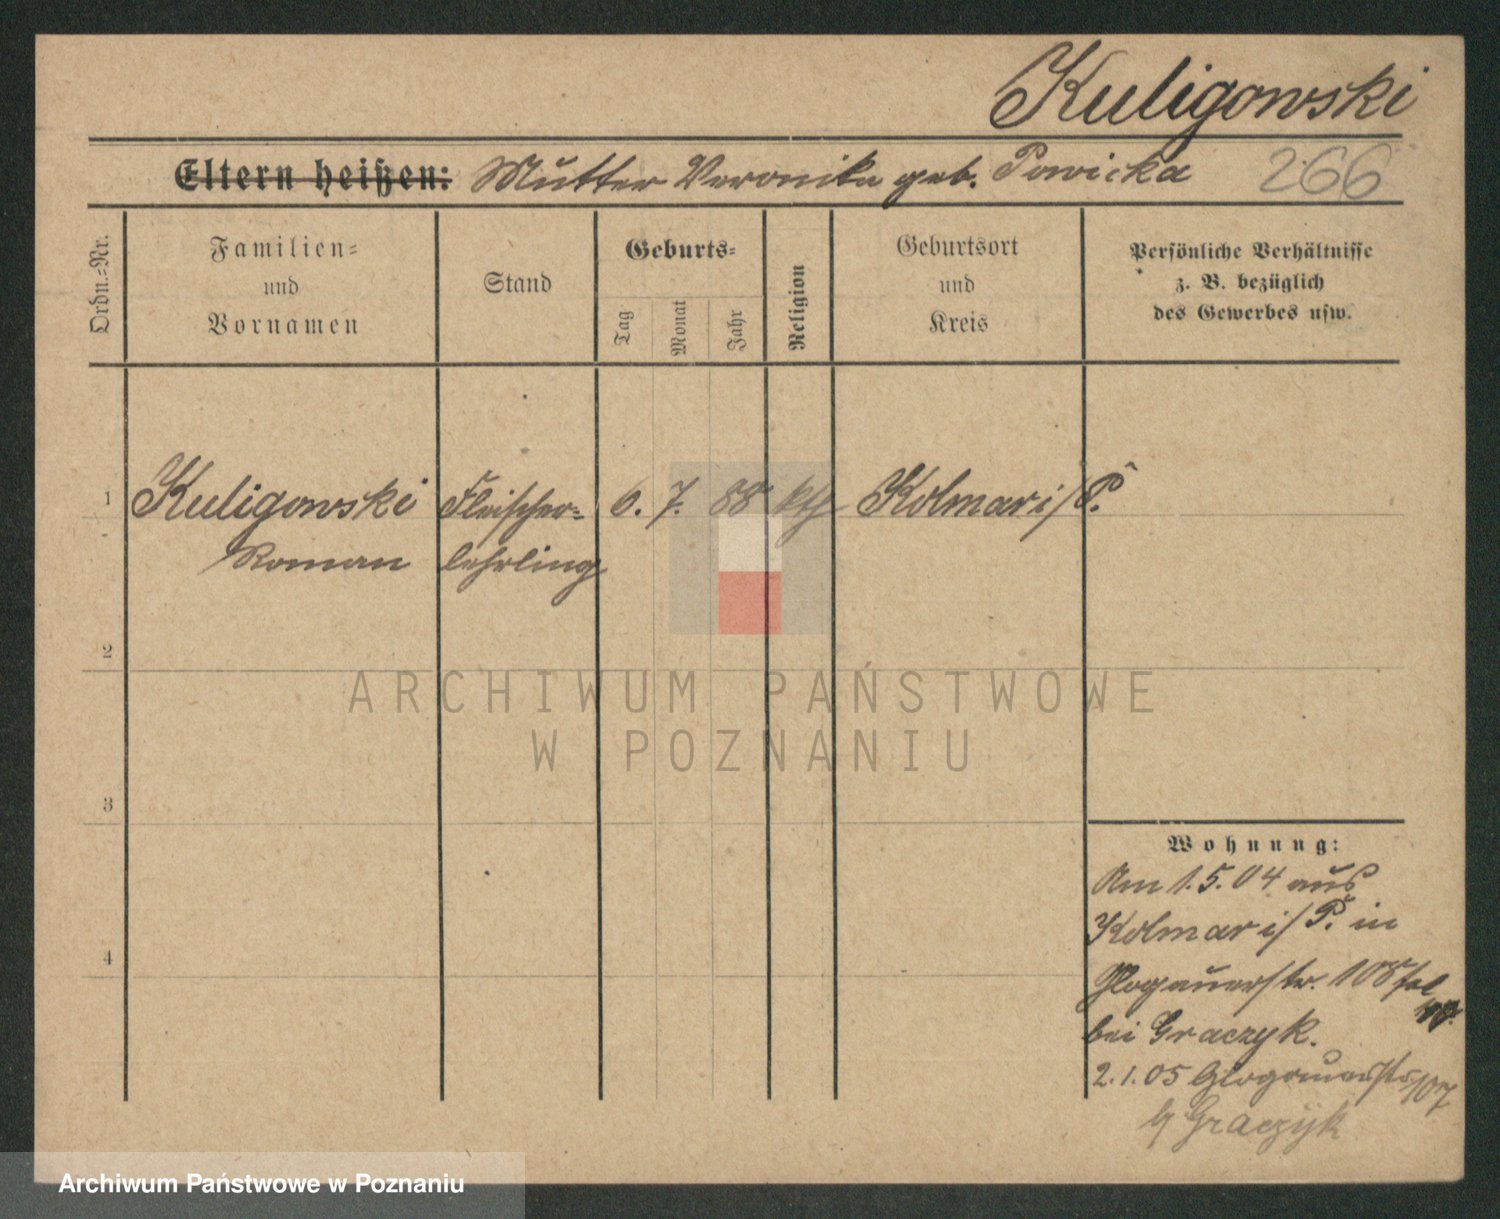 Kuligowski
Eltern heißen: Mutter Veronika geb. Powicka 266
Ordn.=Nr.
Familien=
und
Vornamen
Stand
Geburts=
Tag
Monat
Jahr
Religion
Geburtsort
und
Kreis
Persönliche Verhältnisse
z. B. bezüglich
des Gewerbes usw.
1 Kuligowski Fleischer= 6. 7. 88 kth Kolmar i/P.
Roman lehrling
2
3
4
Wohnung:
Am 1.5.04 aus
Kolmar i/P. in
Glogauerstr. 108
bei Graczyk.
2.1.05 Glogauerstr 107
b/ Graczyk
ARCHIWUM PAŃSTWOWE
W POZNANIU
Archiwum Państwowe w Poznaniu